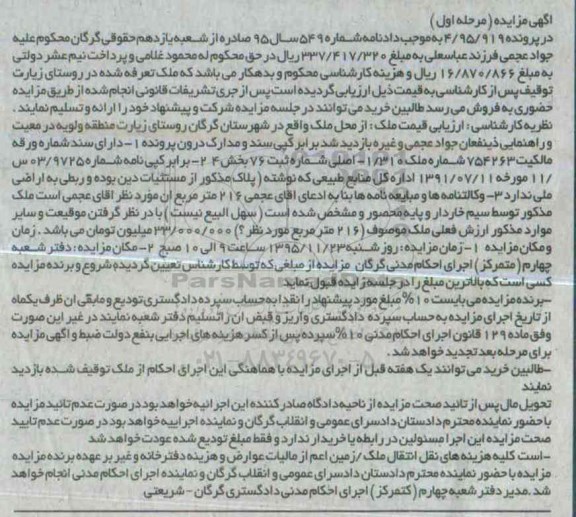 آگهی مزایده (مرحله اول)
در پرونده ۴/۹۵/۹۱۹ به موجب دادنامه شماره ۵۴۹ سال ۹۵ صادره از شعبه یازدهم حقوقی گرگان محکوم علیه
جواد عجمی فرزند عباسعلی به مبلغ ۳۳۷/۴۱۷/۳۲۰ ریال در حق محکوم له محمود غلامی و پرداخت نیم عشر دولتی
به مبلغ ۱۶/۸۷۰/۸۶۶ ریال و هزینه کارشناسی محکوم و بدهکار می باشد که ملک تعرفه شده در روستای زیارت
توقیف پس از کارشناسی به قیمت ذیل ارزیابی گردیده است پس از جری تشریفات قانونی انجام شده از طریق مزایده
حضوری به فروش می رسد طالبین خرید می توانند در جلسه مزایده شرکت و پیشنهاد خود را ارائه و تسلیم نمایند.
نظریه کارشناسی: ارزیابی قیمت ملک: از محل ملک واقع در شهرستان گرگان روستای زیارت منطقه ولویه در معیت
و راهنمایی ذینفعان جواد عجمی و غیره بازدید شد برابر کپی سند و مدارک درون پرونده ۱- دارای سند شماره ورقه
مالکیت ۷۵۴۲۶۳ شماره ملک ۱/۳۱۰- اصلی شماره ثبت ۷۶ بخش ۲-۴ برابر کپی نامه شماره ۰۳/۹۷۲۵ س
/۱۱ مورخه ۱۳۹۱/۰۷/۱۱ اداره کل منابع طبیعی که نوشته (پلاک مذکور از مستثنیات دین بوده و ربطی به اراضی
ملی ندارد ۳- وکالتنامه ها و مبایعه نامه ها بنا به ادعای آقای عجمی ۲۱۶ متر مربع آن مورد نظر آقای عجمی است ملک
مذکور توسط سیم خاردار و پایه محصور و مشخص شده است (سهل البیع نیست) با در نظر گرفتن موقعیت و سایر
موارد مذکور ارزش فعلی ملک موصوف (۲۱۶ متر مربع مورد نظر؟) ۳۳/۰۰۰/۰۰۰ میلیون تومان می باشد. زمان
و مکان مزایده ۱- زمان مزایده: روز شنبه ۱۳۹۵/۱۱/۲۳ ساعت ۹ الی ۱۰ صبح ۲- مکان مزایده: دفتر شعبه
چهارم (متمرکز) اجرای احکام مدنی گرگان مزایده از مبلغی که توسط کارشناس تعیین گردیده شروع و برنده مزایده
کسی است که بالاترین مبلغ را در جلسه مزایده قبول نماید
-برنده مزایده می بایست ۱۰% مبلغ مورد پیشنهاد را نقدا به حساب سپرده دادگستری تودیع و مابقی آن ظرف یکماه
از تاریخ اجرای مزایده به حساب سپرده دادگستری واریز و قبض آن را تسلیم دفتر شعبه نمایند در غیر این صورت
وفق ماده ۱۲۹ قانون اجرای احکام مدنی ۱۰% سپرده پس از کسر هزینه های اجرایی بنفع دولت ضبط و آگهی مزایده
برای مرحله بعد تجدید خواهد شد.
-طالبین خرید می توانند یک هفته قبل از اجرای مزایده با هماهنگی این اجرای احکام از ملک توقیف شده بازدید
نمایند
تحویل مال پس از تائید صحت مزایده از ناحیه دادگاه صادر کننده این اجرائیه خواهد بود در صورت عدم تائید مزایده
با حضور نماینده محترم دادستان دادسرای عمومی و انقلاب گرگان و نماینده اجراییه خواهد بود در صورت عدم تایید
صحت مزایده این اجرا مسئولین در رابطه با خریدار ندارد و فقط مبلغ تودیع شده عودت خواهد شد
-است کلیه هزینه های نقل انتقال ملک / زمین اعم از مالیات عوارض و هزینه دفترخانه و غیر بر عهده برنده مزایده
مزایده با حضور نماینده محترم دادستان دادسرای عمومی و انقلاب گرگان و نماینده اجرای احکام مدنی انجام خواهد
شد. مدیر دفتر شعبه چهارم (کتمرکز) اجرای احکام مدنی دادگستری گرگان - شریعتی
ParsNamad
۰۲۱-۸۸۳۴۹۶۷۰-۵